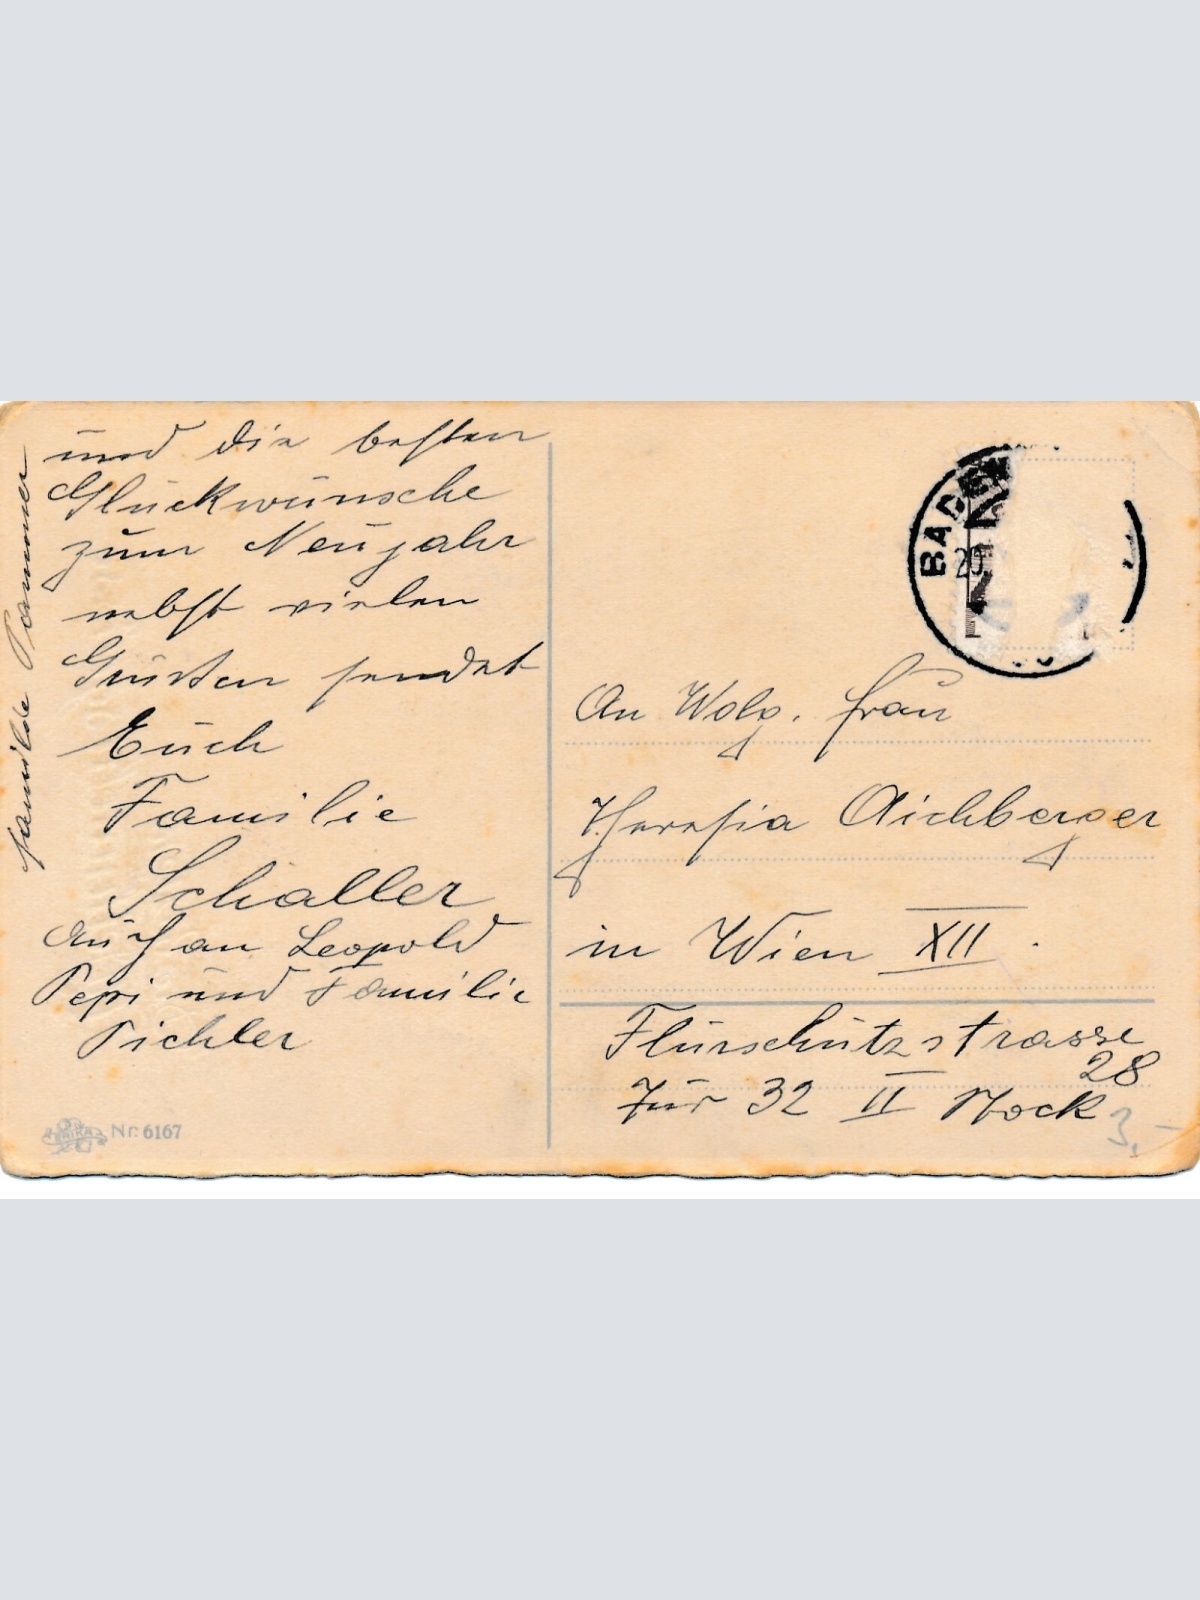 und die besten
Glückwünsche
zum Neujahr
nebst vielen
Grüssen sendet
Euch
Familie
Schaller
Auch an Leopold
Pepi und Familie
Pichler
Familie
Nr. 6167
BADEN
20
An Wolg. Frau
Theresia Aichberger
in Wien XII.
Flurschützstrasse
28
Tür 32 II Stock
3.-